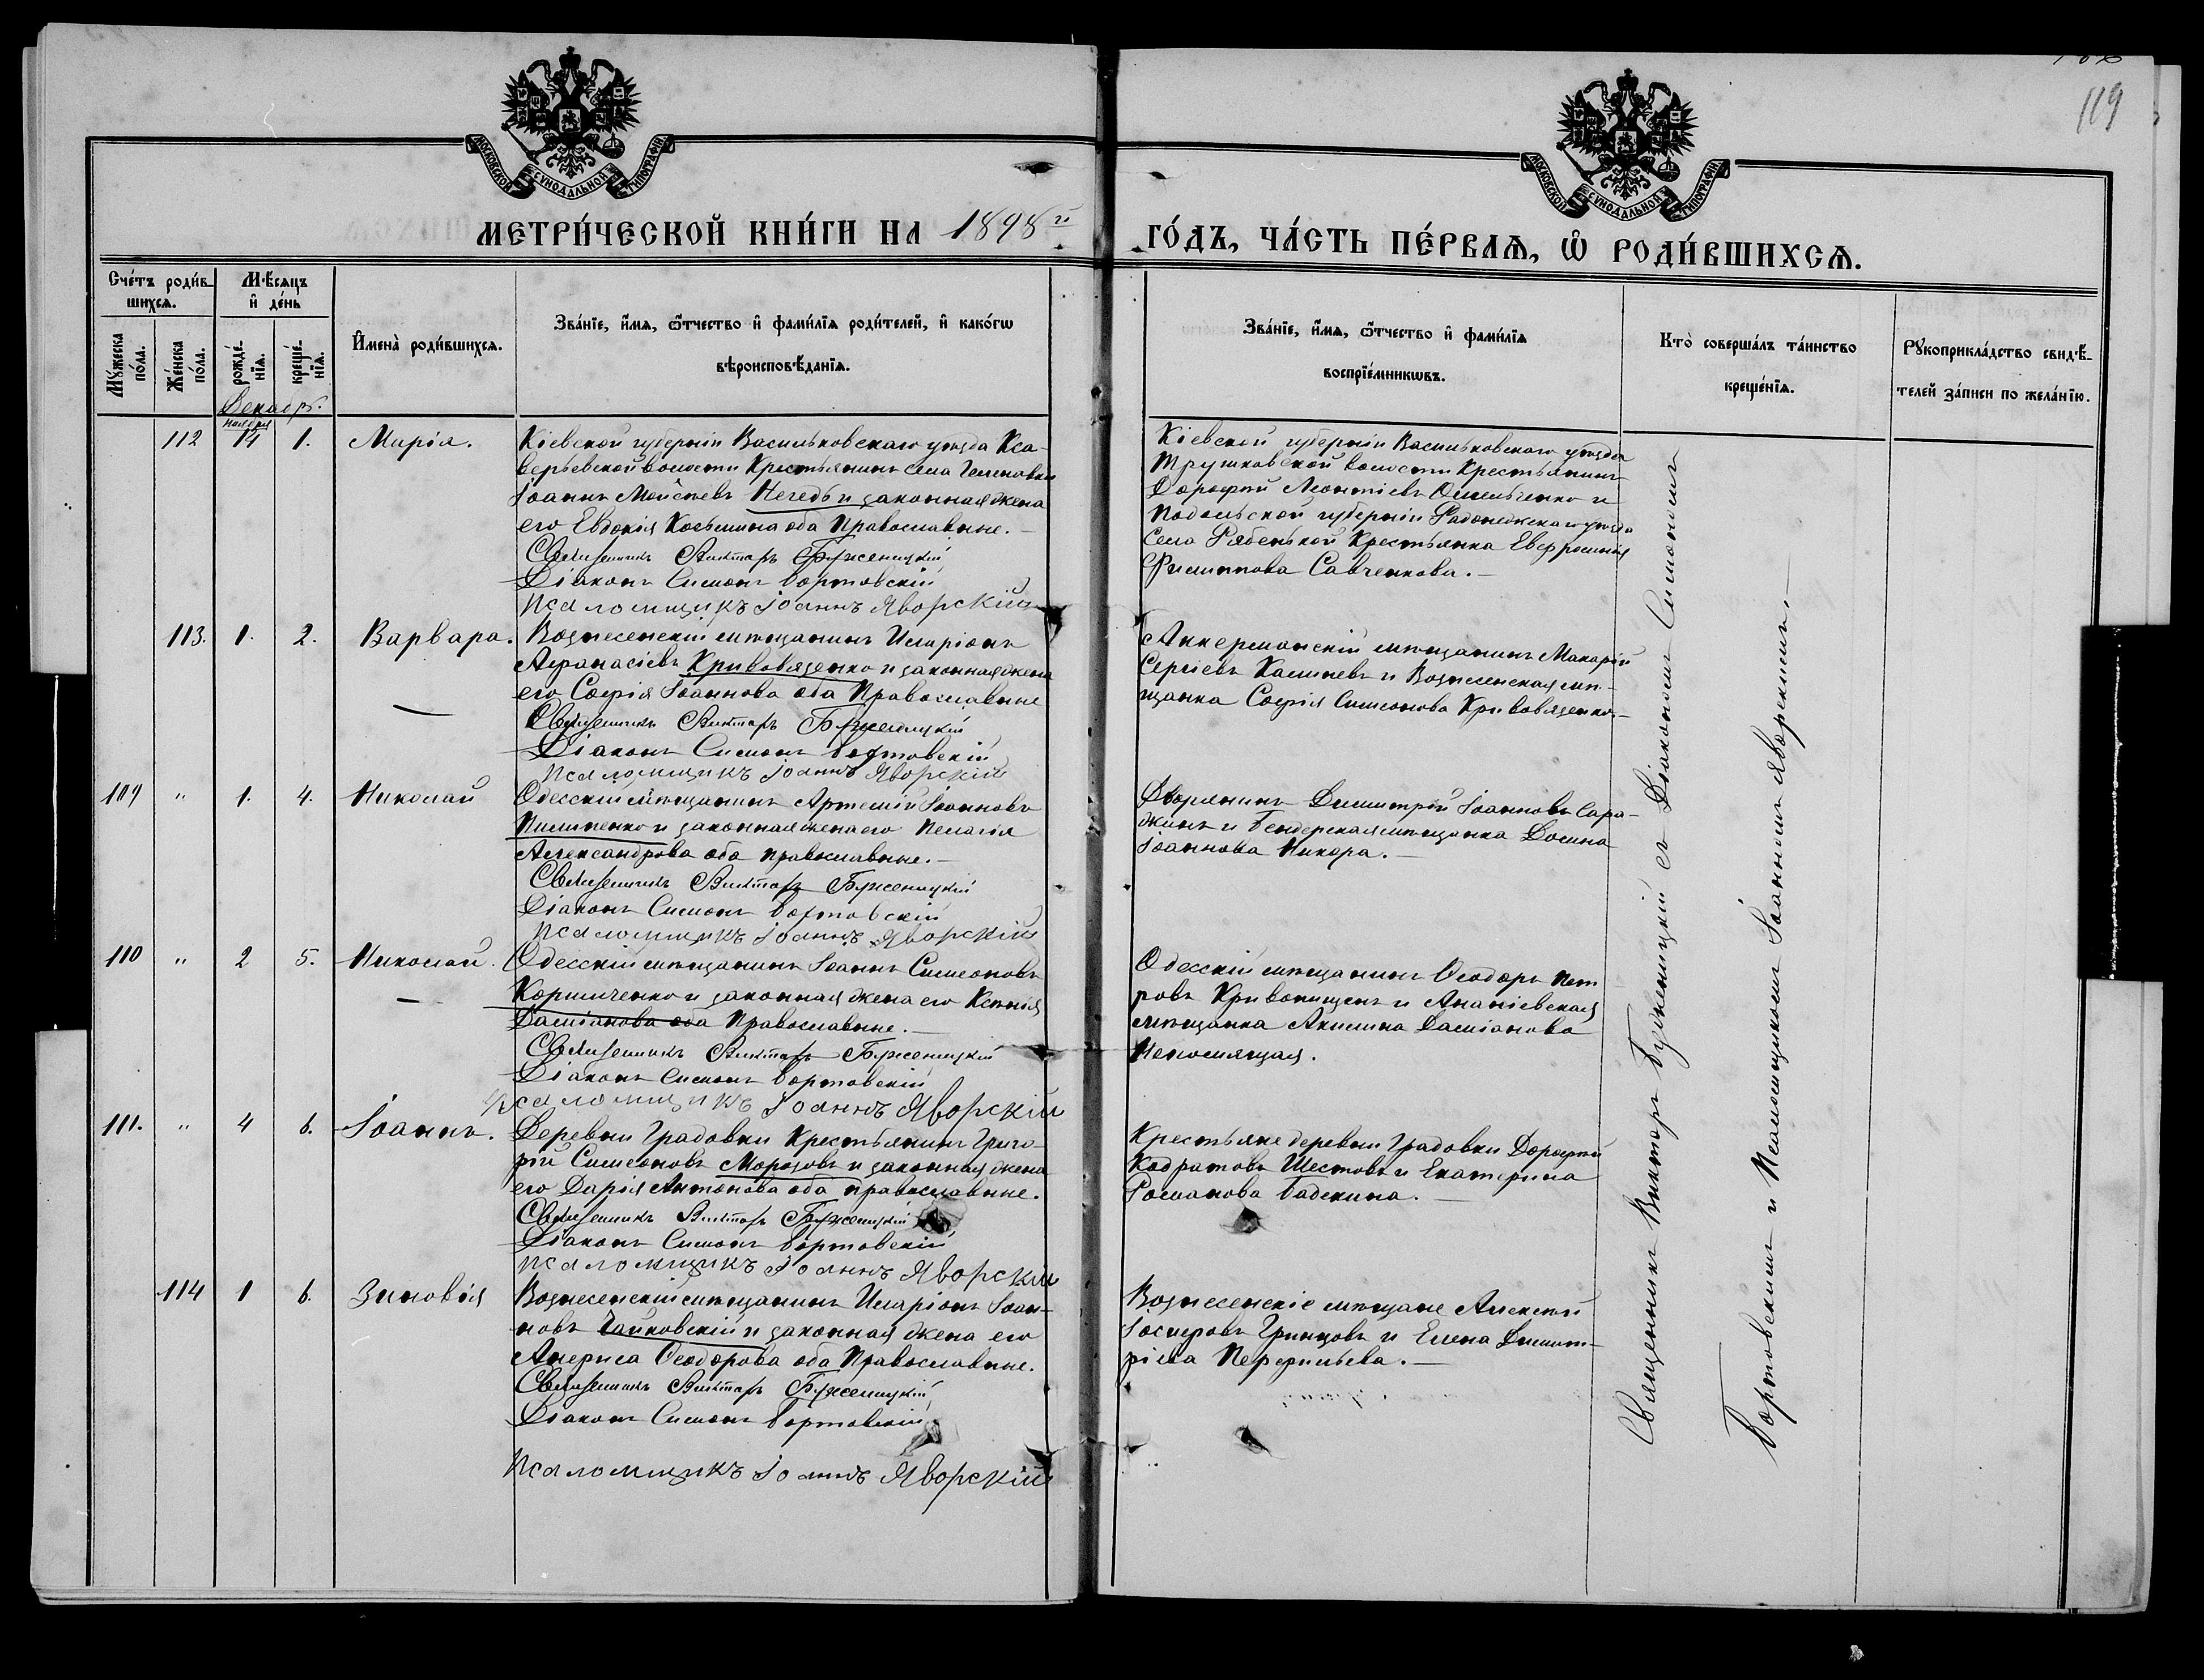 119
МОСКОВСКОЙ СУНОДАЛЬНОЙ ТИПОГРАФІИ
МОСКОВСКОЙ СУНОДАЛЬНОЙ ТИПОГРАФІИ
МЕТРИ́ЧЕСКОЙ КНИ́ГИ НА 1898й ГО́ДЪ, ЧА́СТЬ ПЕ́РВАѦ, Ѡ РОДИ́ВШИХСѦ.
Сче́тъ роди́в-
шихсѧ.
Мѣ́сѧцъ
и҆ де́нь
Мꙋ́жеска
по́ла.
Же́нска
по́ла.
рожде́-
нїѧ.
креще́-
нїѧ.
И҆мена̀ роди́вшихсѧ.
Зва́нїе, и҆́мѧ, ѻ҆́тчество и҆ фами́лїѧ роди́телей, и҆ како́гѡ
вѣроисповѣ́данїѧ.
Зва́нїе, и҆́мѧ, ѻ҆́тчество и҆ фами́лїѧ
воспрїе́мникѡвъ.
Кто̀ соверша́лъ та́инство
креще́нїѧ.
Рꙋкоприкла́дство свидѣ́-
телей за́писи по жела́нїю.
Декабр.
Ноября
112 14 1. Марія.
Кіевской губерніи Васильковскаго уѣзда Кса-
верьевской волости Крестьянинъ села
Іоаннъ Моисеевъ Негедъ и законная жена
его Евдокія Косьмина оба Православные.
Священникъ Викторъ Бужженицкій
Діаконъ Симонъ Бортовскій
Псаломщикъ Іоаннъ Яворскій
Кіевской губерніи Васильковскаго уѣзда
Трушковской волости Крестьянинъ
Дорофей Леонтіевъ Омельченко и
Подольской губерніи уѣзда
Села Крестьянка Евфросинія
Филиппова Савченкова.
113. 1. 2. Варвара.
Вознесенскій мѣщанинъ Иларіонъ
Афанасіевъ Кривовязенко и законная жена
его Софія Іоаннова оба Православные
Священникъ Викторъ Бужженицкій
Діаконъ Симонъ Бортовскій
Псаломщикъ Іоаннъ Яворскій
Аккерманскій мѣщанинъ Макарій
Сергіевъ и Вознесенская мѣ-
щанка Софія Симеонова Кривовязенко.
109 " 1. 4. Николай
Одесскій мѣщанинъ Артемій Іоанновъ
Пилипенко и законная жена его Пелагія
Александрова оба православные.
Священникъ Викторъ Бужженицкій
Діаконъ Симонъ Бортовскій
Псаломщикъ Іоаннъ Яворскій
Дворянинъ Димитрій Іоанновъ Сара-
джинъ и Бендерская мѣщанка Домна
Іоаннова Никора.
110 " 2 5. Николай.
Одесскій мѣщанинъ Іоаннъ Симеоновъ
Корниченко и законная жена его Ксенія
Даміанова оба Православные.
Священникъ Викторъ Бужженицкій
Діаконъ Симонъ Бортовскій
Псаломщикъ Іоаннъ Яворскій
Одесскій мѣщанинъ Ѳеодоръ Пет
ровъ и Ананіевская
мѣщанка Акилина Даміанова
111. " 4 6. Іоаннъ.
Деревни Градовки Крестьянинъ Григо-
рій Симеоновъ Морозовъ и законная жена
его Дарія Антонова оба православные.
Священникъ Викторъ Бужженицкій
Діаконъ Симонъ Бортовскій
Псаломщикъ Іоаннъ Яворскій
Крестьяне деревни Градовки Дорофей
Кодратовъ Шестовъ и Екатерина
Романова Бабкина.
114 1 6. Зиновія
Вознесенскій мѣщанинъ Иларіонъ Іоан-
новъ Чайковскій и законная жена его
Анфиса Ѳеодорова оба Православные.
Священникъ Викторъ Бужженицкій
Діаконъ Симонъ Бортовскій
Псаломщикъ Іоаннъ Яворскій
Вознесенскіе мѣщане Алексѣй
Іосифовъ Гринцовъ и Елена Димит-
ріева Перфильева.
Священникъ Викторъ Бужженицкій съ Діакономъ Симономъ
Бортовскимъ и Псаломщикомъ Іоанномъ Яворскимъ.